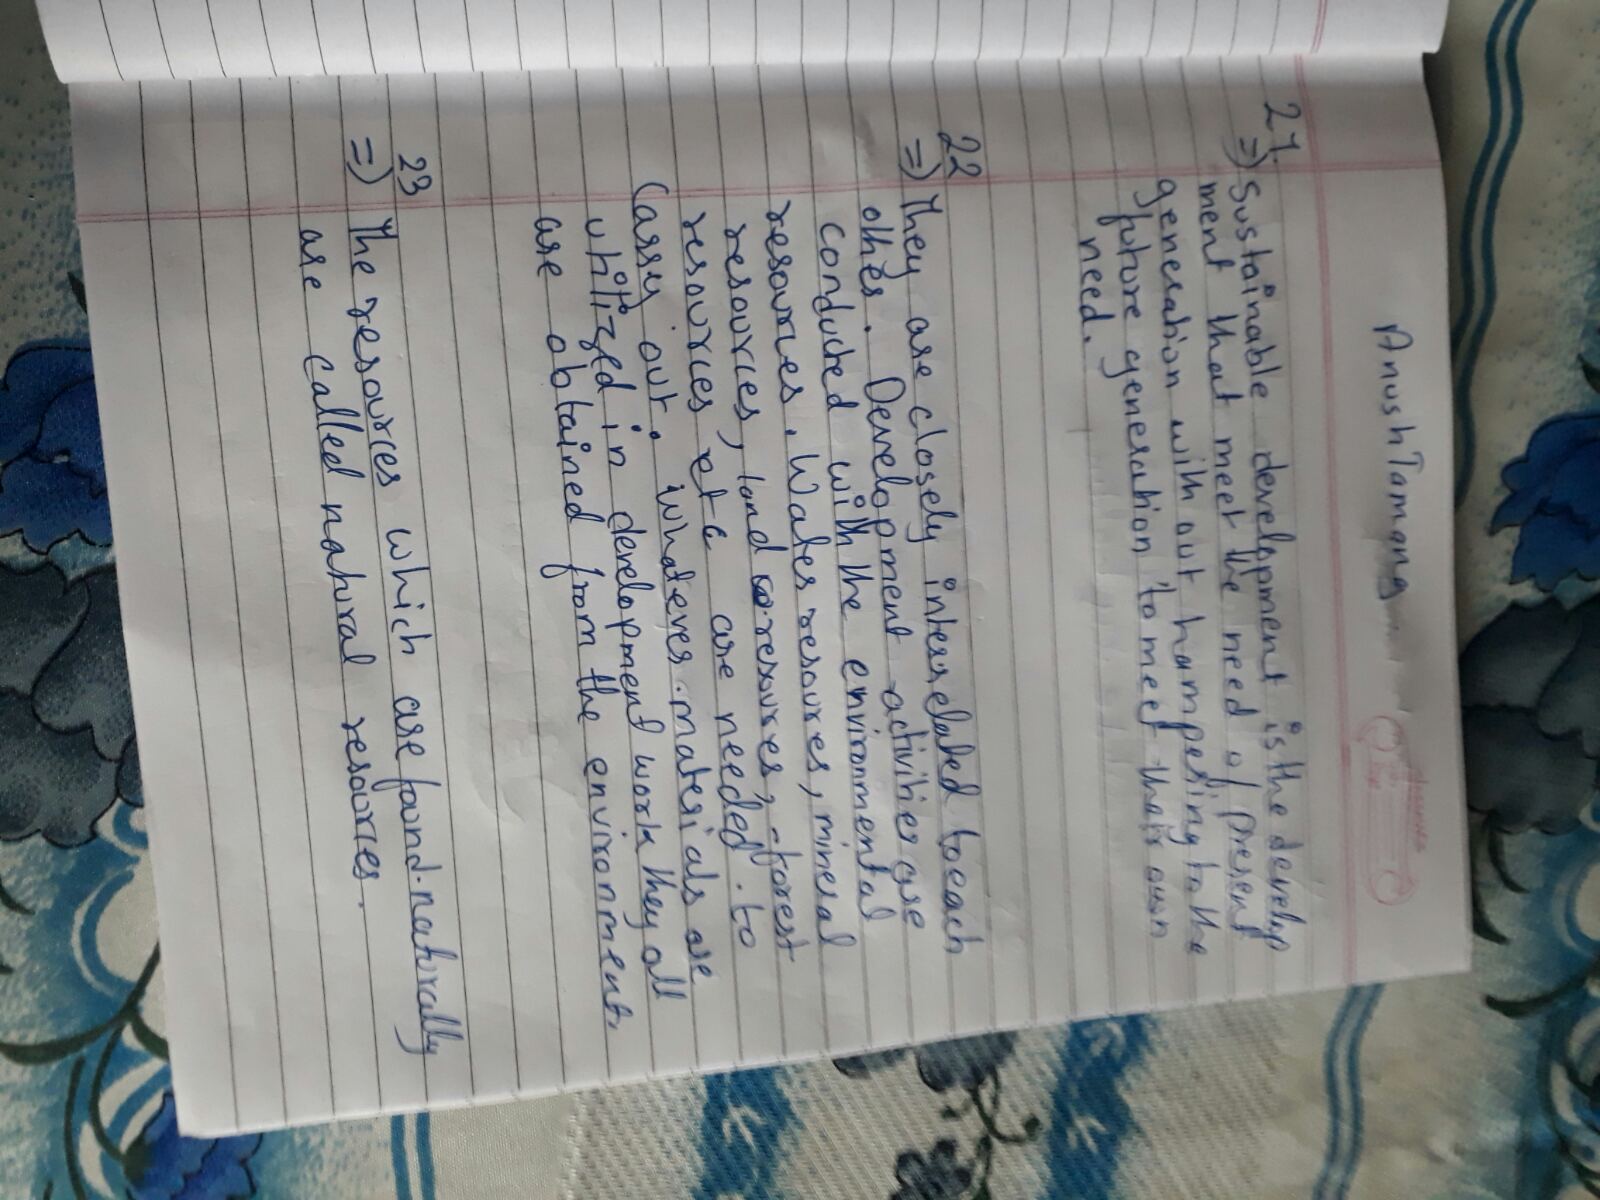 Anush Tamang
21.
=) Sustainable development is the develop
ment that meet the need of present
generation with out hampering to the
future generation to meet their own
need.
22
=) They are closely interrelated to each
other. Development activities are
conducted with the environmental
resources. Water resources, mineral
resources, land resources, forest
resources etc are needed. to
Carry out. whatever materials are
utilized in development work they all
are obtained from the environment.
23
=) The resources which are found naturally
are called natural resources.